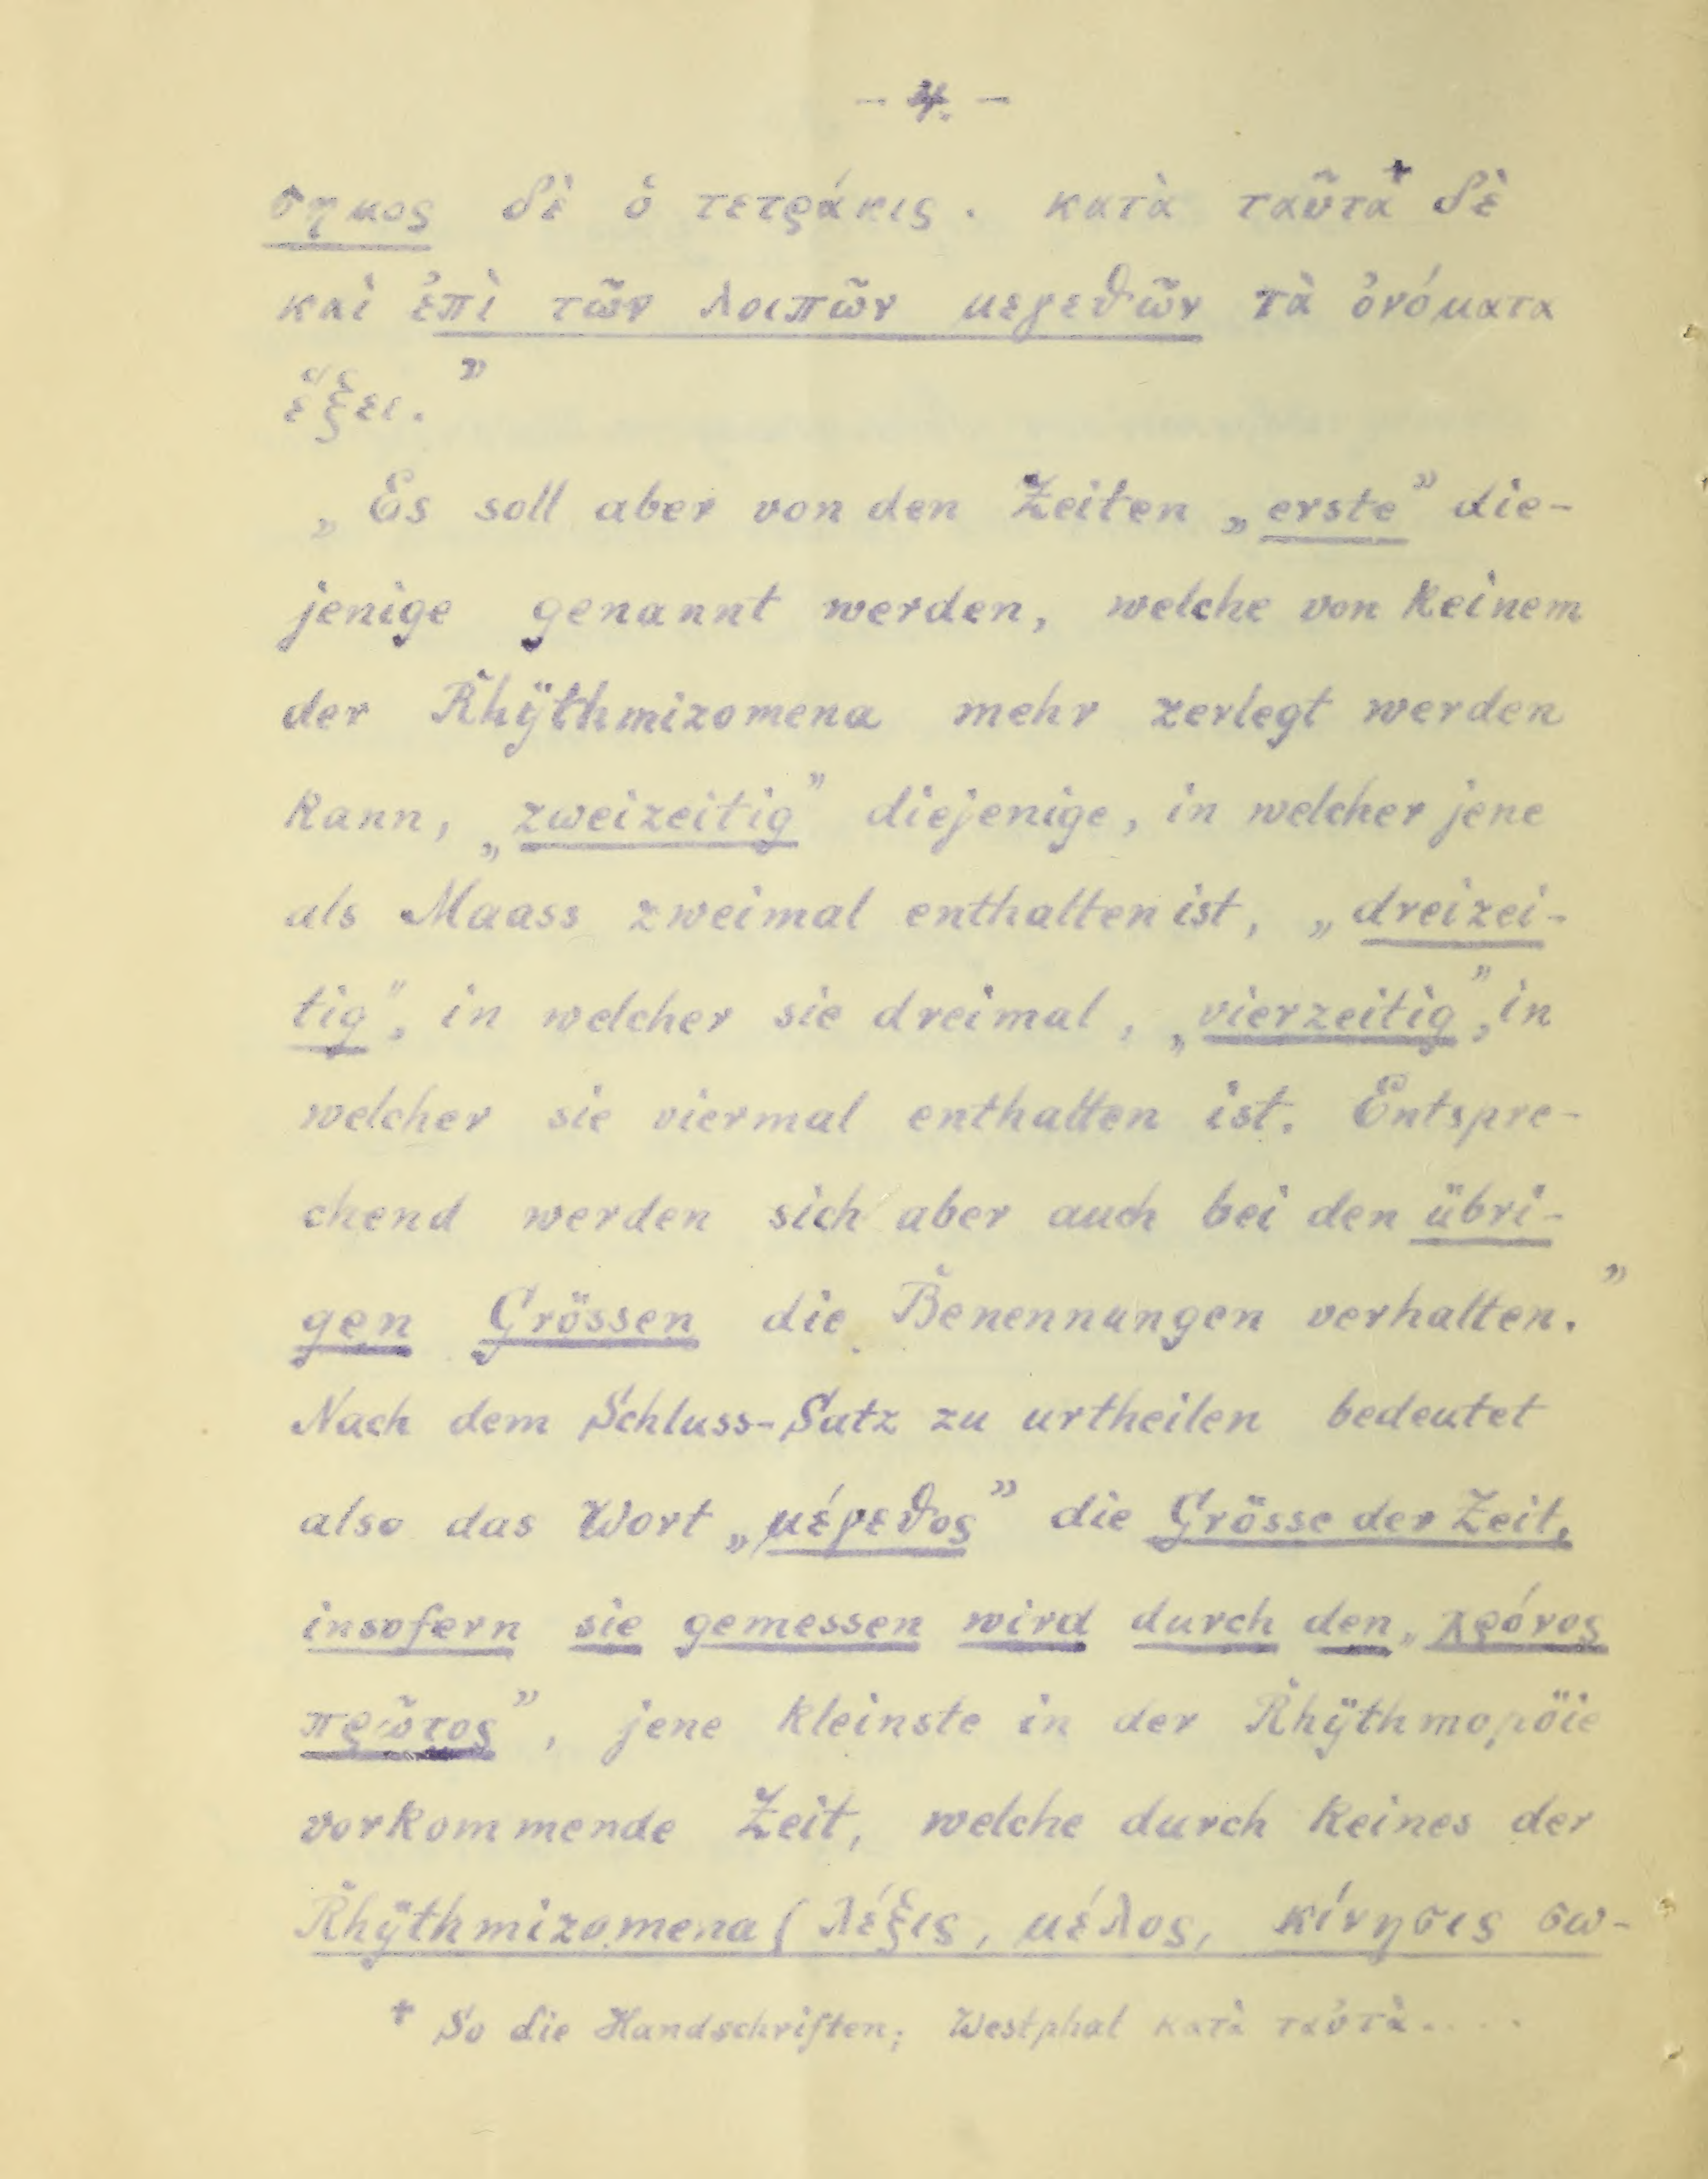 - 4. -
σημος δὲ ὁ τετράκις. κατὰ ταῦτὰ⁺ δὲ
καὶ ἐπὶ τῶν λοιπῶν μεγεθῶν τὰ ὀνόματα
ἕξει.”
„Es soll aber von den Zeiten „erste” die-
jenige genannt werden, welche von keinem
der Rhÿthmizomena mehr zerlegt werden
kann, „zweizeitig” diejenige, in welcher jene
als Maass zweimal enthalten ist, „dreizei-
tig”, in welcher sie dreimal, „vierzeitig”, in
welcher sie viermal enthalten ist. Entspre-
chend werden sich aber auch bei den übri-
gen Grössen die Benennungen verhalten.”
Nach dem Schluss-Satz zu urtheilen bedeutet
also das Wort „μέγεθος” die Grösse der Zeit,
insofern sie gemessen wird durch den „χρόνος
πρῶτος”, jene kleinste in der Rhÿthmopöie
vorkommende Zeit, welche durch keines der
Rhÿthmizomena (λέξις, μέλος, κίνησις σω-
⁺ So die Handschriften; Westphal κατὰ ταὐτὰ....